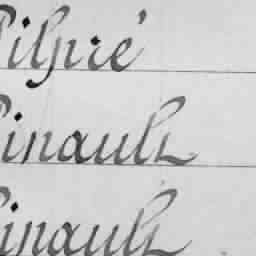 Pilpré
Pinault
Pinault